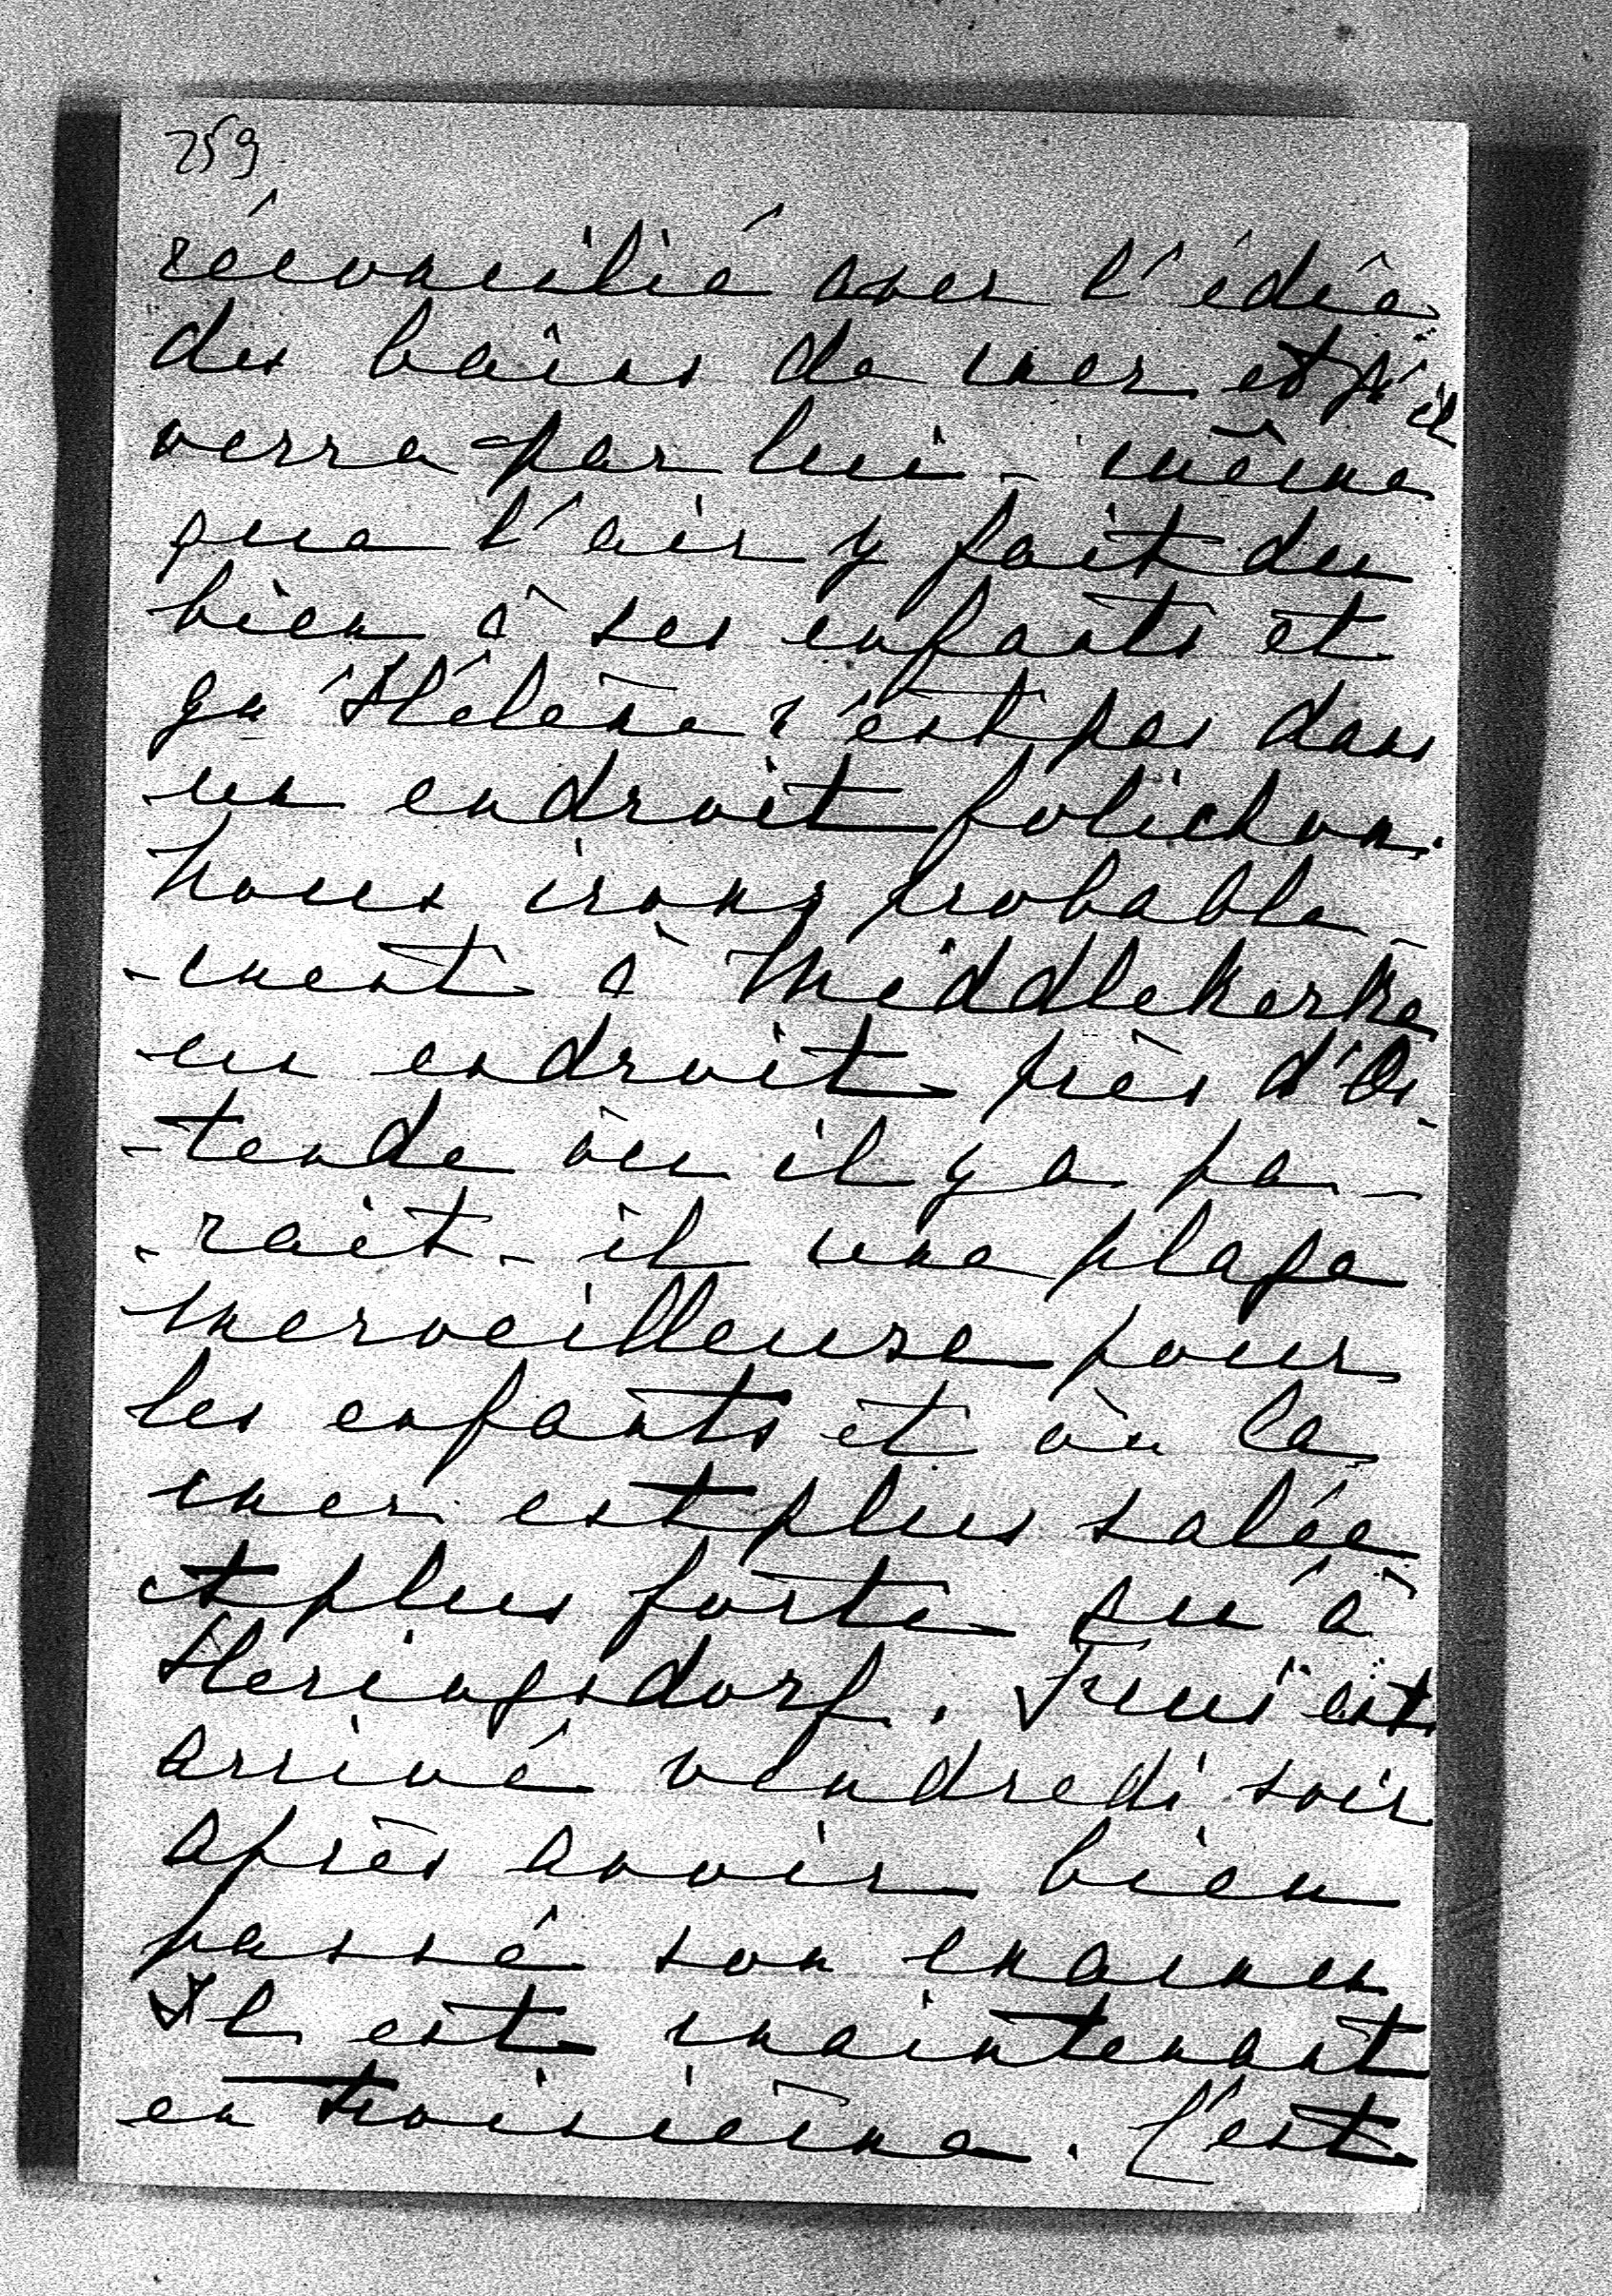 259
réconcilié avec l'idée
des bains de mer et qu'il
verra par lui-même
que l'air y fait du
bien à ses enfants et
qu'Hélène n'est pas dans
un endroit folichon.
Nous irons probable-
-ment à Middlekerke
un endroit près d'Os-
-tende où il y a pa-
-rait-il une plage
merveilleuse pour
les enfants et où la
mer est plus salée
et plus forte qu'à
Heringsdorf. est
arrivé vendredi soir
après avoir bien
passé son examen
Il est maintenant
en troisième. C'est